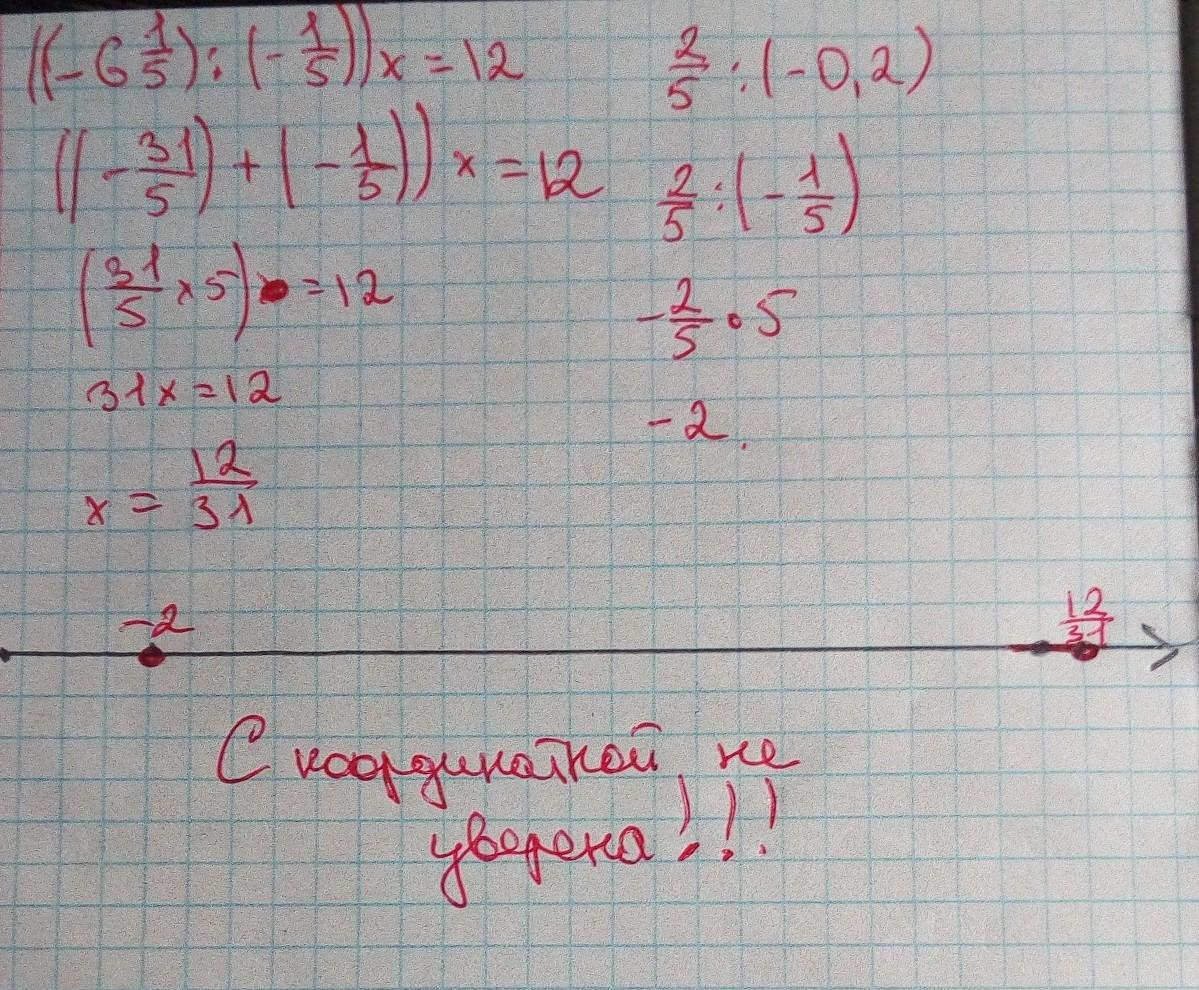 ((-6 1/5) : (-1/5))x = 12
((-31/5) + (-1/5))x = 12
(31/5 × 5) = 12
31x = 12
x = 12/31
2/5 : (-0,2)
2/5 : (-1/5)
-2/5 • 5
-2.
-2
12/31
С координаткой не
уверена!!!